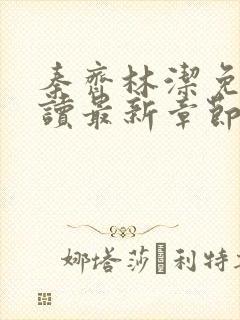 秦齊林潔免
讀最新章節
娜塔莎·利特